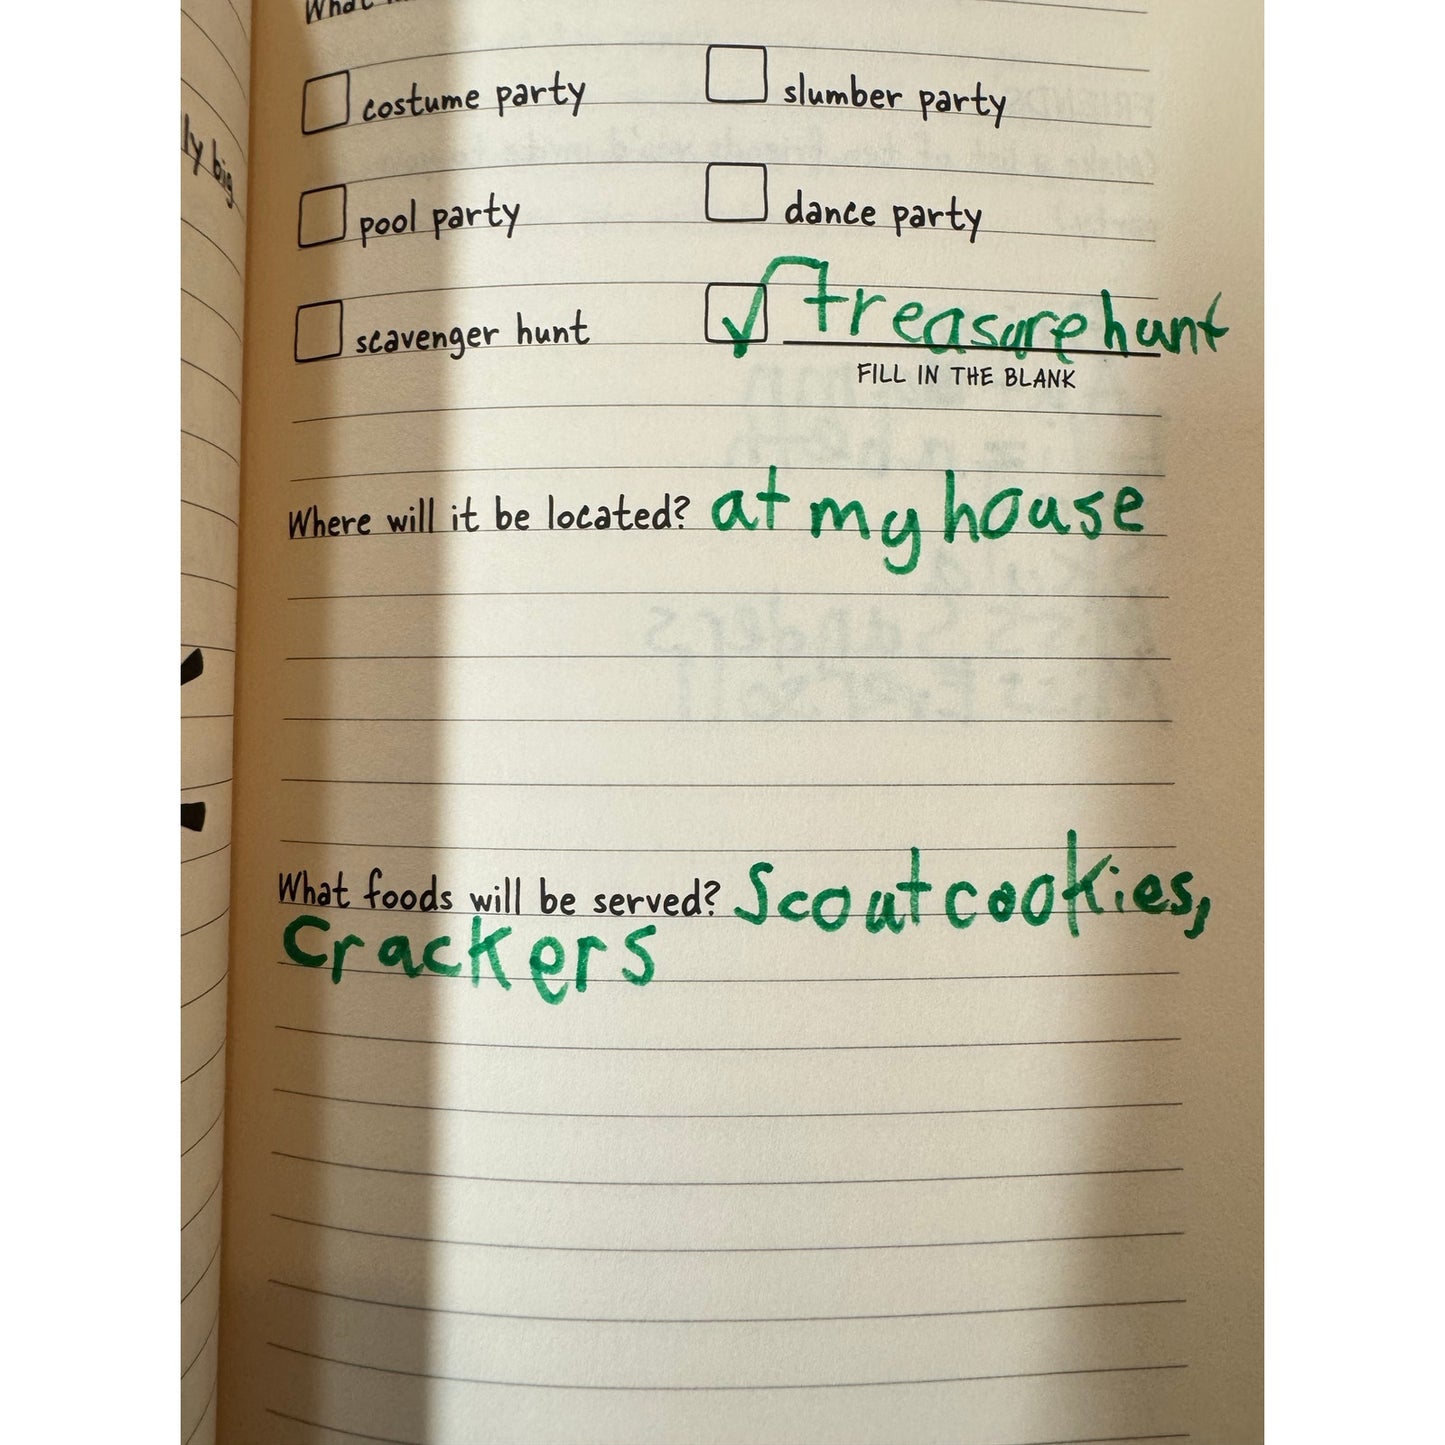 What
ly big
costume party slumber party
pool party dance party
scavenger hunt treasure hunt
FILL IN THE BLANK
Where will it be located? at my house
What foods will be served? Scout cookies,
crackers